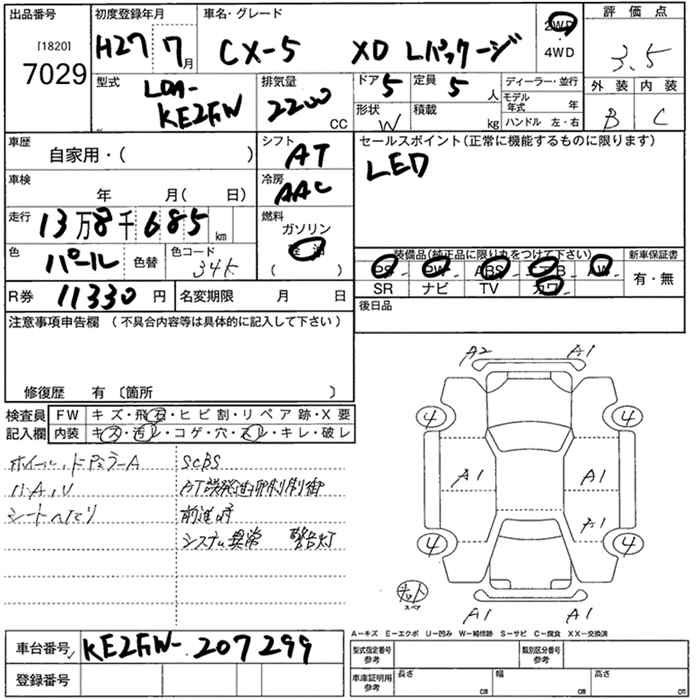 出品番号 初度登録年月 車名・グレード 評価点
[1820]
7029
H27 7月 CX-5 XD Lパッケージ 2WD
4WD
3.5
型式 LDA-KE2FW 排気量 2200 CC
ドア 5 定員 5人 ディーラー・並行
形状 W 積載 kg モデル年式 年
ハンドル 左・右
外装 内装
B C
車歴 自家用・( ) シフト AT
セールスポイント(正常に機能するものに限ります)
LED
車検 年 月( 日) 冷房 AAC
走行 13万8千685km 燃料 ガソリン
軽油
( )
色 パール 色替 色コード 34K
装備品(純正品に限り丸をつけて下さい) 新車保証書
PS PW ABS AW
SR ナビ TV カワ 有・無
R券 11330円 名変期限 月 日
後日品
注意事項申告欄 (不具合内容等は具体的に記入して下さい)
修復歴 有 〔箇所 〕
検査員記入欄 FW キズ・飛石・ヒビ割・リペア跡・X要
内装 キズ・汚レ・コゲ・穴・スレ・キレ・破レ
SCBS
シートヘタリ
前進時
システム異常 警告灯
A2 A1
4 4
A1 A1
A1
4 4
スペア
A1 A1
A-キズ E-エクボ U-凹み W-補修跡 S-サビ C-腐食 XX-交換済
車台番号 KE2FW-207299
登録番号
型式指定番号参考 類別区分番号参考
車庫証明用参考 長さ cm 幅 cm 高さ cm